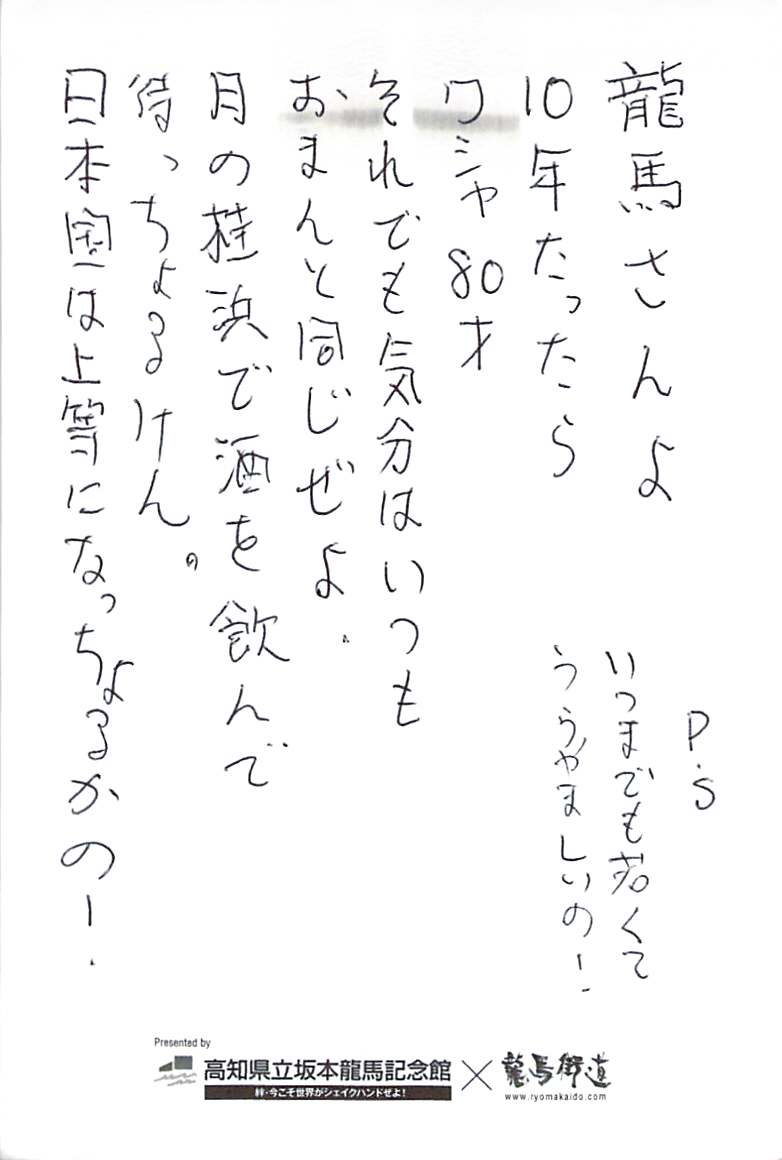 龍馬さんよ
10年たったら
ワシャ80才
それでも気分はいつも
おまんと同じぜよ.
月の桂浜で酒を飲んで
待っちょるけん。
日本国は上等になっちょるかの!
P.S
いつまでも若くて
うらやましいの!
Presented by
高知県立坂本龍馬記念館×龍馬街道
絆・今こそ世界がシェイクハンドせよ!
www.ryomakaido.com